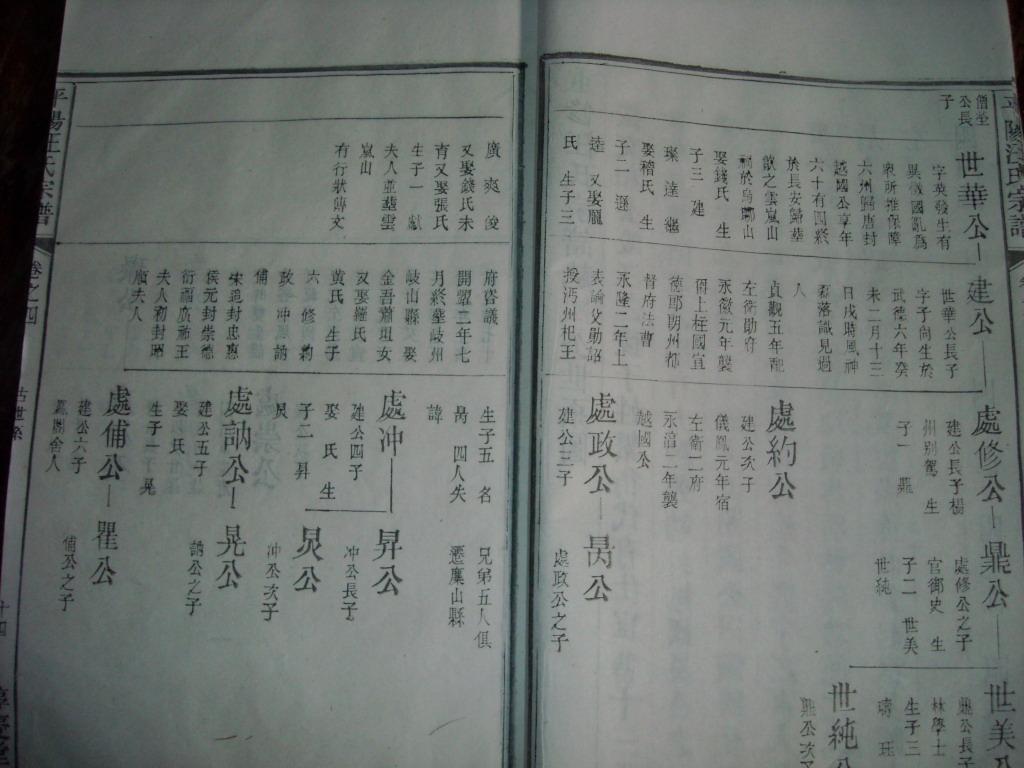 平陽汪氏宗譜
僧瑩
公長
子
世華公
字英發生有
異徵國亂爲
衆所推保障
六州歸唐封
越國公享年
六十有四終
於長安歸塟
歙之雲嵐山
祠於烏聊山
娶錢氏 生
子三 建
璨 達 繼
娶稽氏 生
子二 遜
逵 又娶龐
氏 生子三
建公
世華公長子
字子尚生於
武德六年癸
未二月十三
日戌時風神
磊落識見過
人
貞觀五年配
左衛勛府
永徽元年襲
爵上柱國宣
德郎朗州都
督府法曹
永隆二年上
表論父勛詔
授沔州杞王
處修公
建公長子楊
州別駕 生
子一 鼎
鼎公
處修公之子
官御史 生
子二 世美
世純
世美公
鼎公長子
林學士
生子三
世純公
鼎公次子
處約公
建公次子
儀鳳元年宿
左衛二府
永淳二年襲
越國公
處政公
建公三子
昺公
處政公之子
廣 爽 俊
又娶錢氏未
育又娶張氏
生子一 獻
夫人並塟雲
嵐山
有行狀傳文
府咨議
開曜二年七
月終塟岐州
岐山縣 娶
金吾蕭垣女
又娶羅氏
黃氏 生子
六 修 約
政 冲 訥
俌
宋追封忠惠
侯元封崇德
衍福廣祐王
夫人初封昭
順夫人
生子五 名
昺 四人失
諱
兄弟五人俱
遷麋山縣
處冲
建公四子
娶 氏 生
子二 昇
炅
昇公
冲公長子
炅公
冲公次子
處訥公
建公五子
娶 氏
生子一 晃
晃公
訥公之子
處俌公
建公六子
瞿公
俌公之子
平陽汪氏宗譜
卷之四
古世系
十四